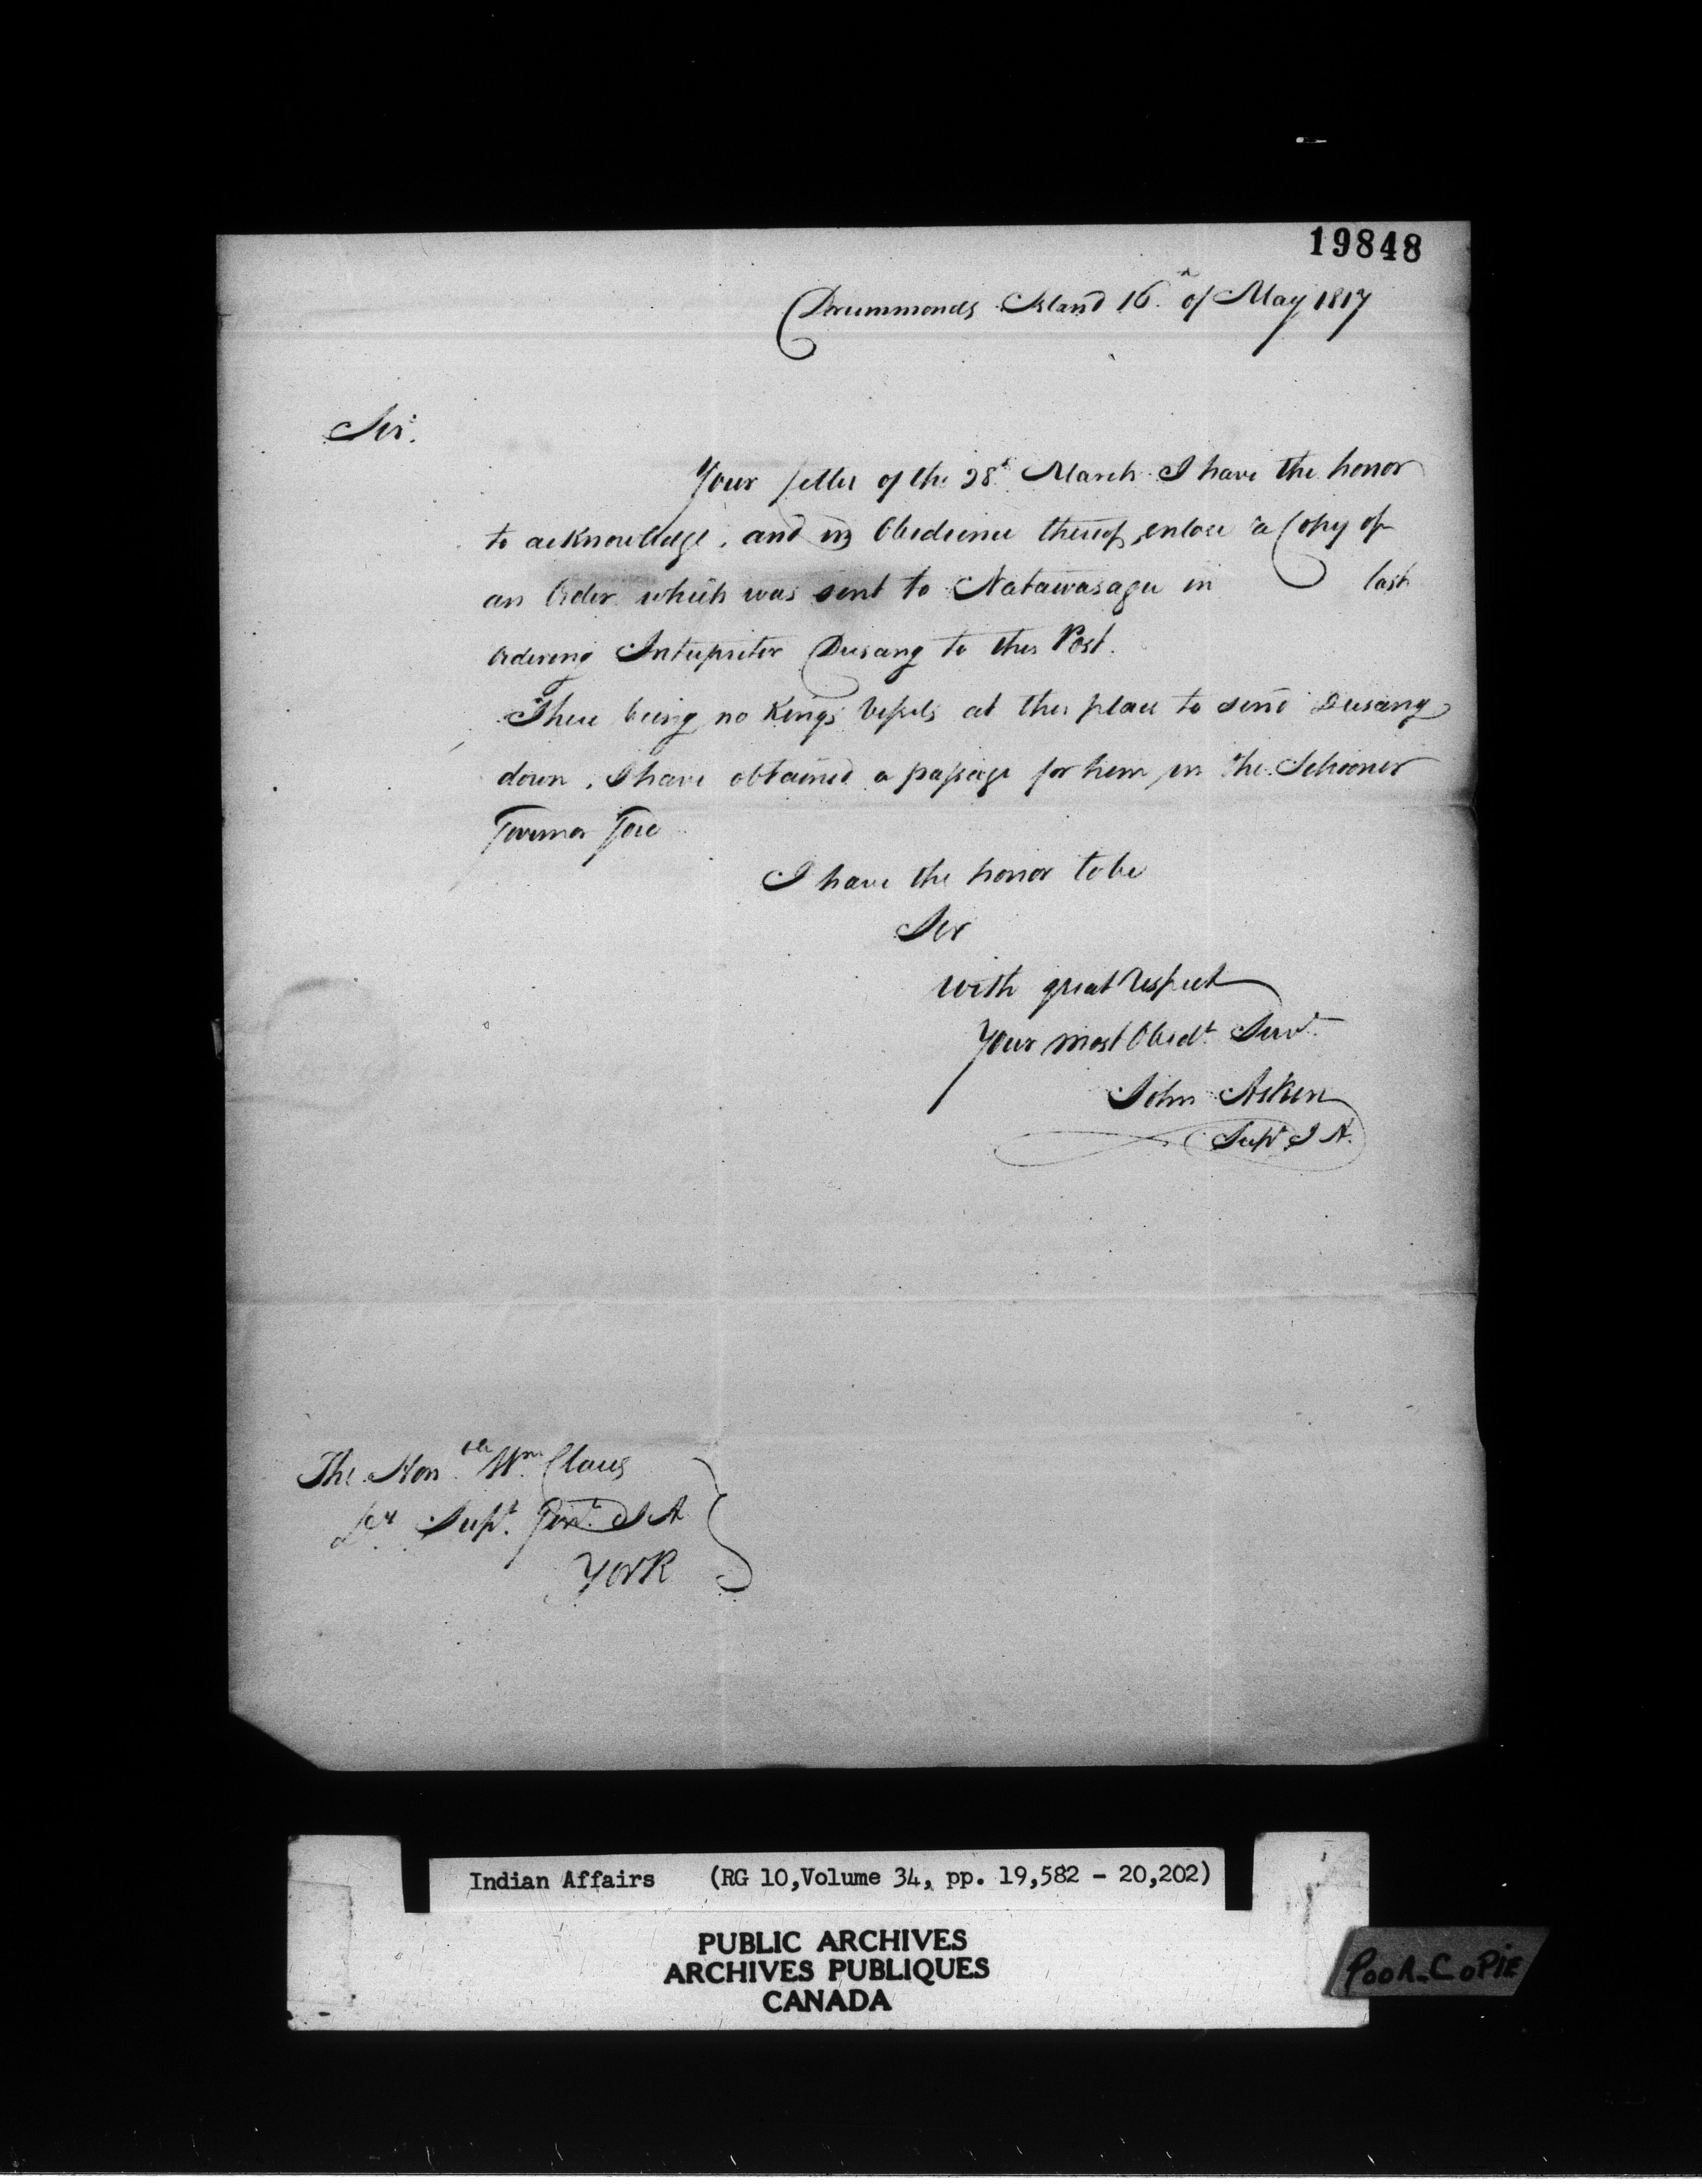 19848
Drummonds Island 16th of May 1817
Sir.
Your letter of the 28th March I have the honor
to acknowledge, and in Obedience thereof, enclose a Copy of
an Order which was sent to Natawasaga in last
Ordering Interpreter Dusang to this Post.
There being no Kings Vessels at this place to send Dusang
down, I have obtained a passage for him in the Schooner
I have the honor to be
Sir
with great respect
Your most Obedt. Servt.
John Askin
Supt I A.
The Honble Wm. Claus
Dy Supt. Genl. I A
York
Indian Affairs (RG 10, Volume 34, pp. 19,582 - 20,202)
PUBLIC ARCHIVES
ARCHIVES PUBLIQUES
CANADA
POOR-COPIE